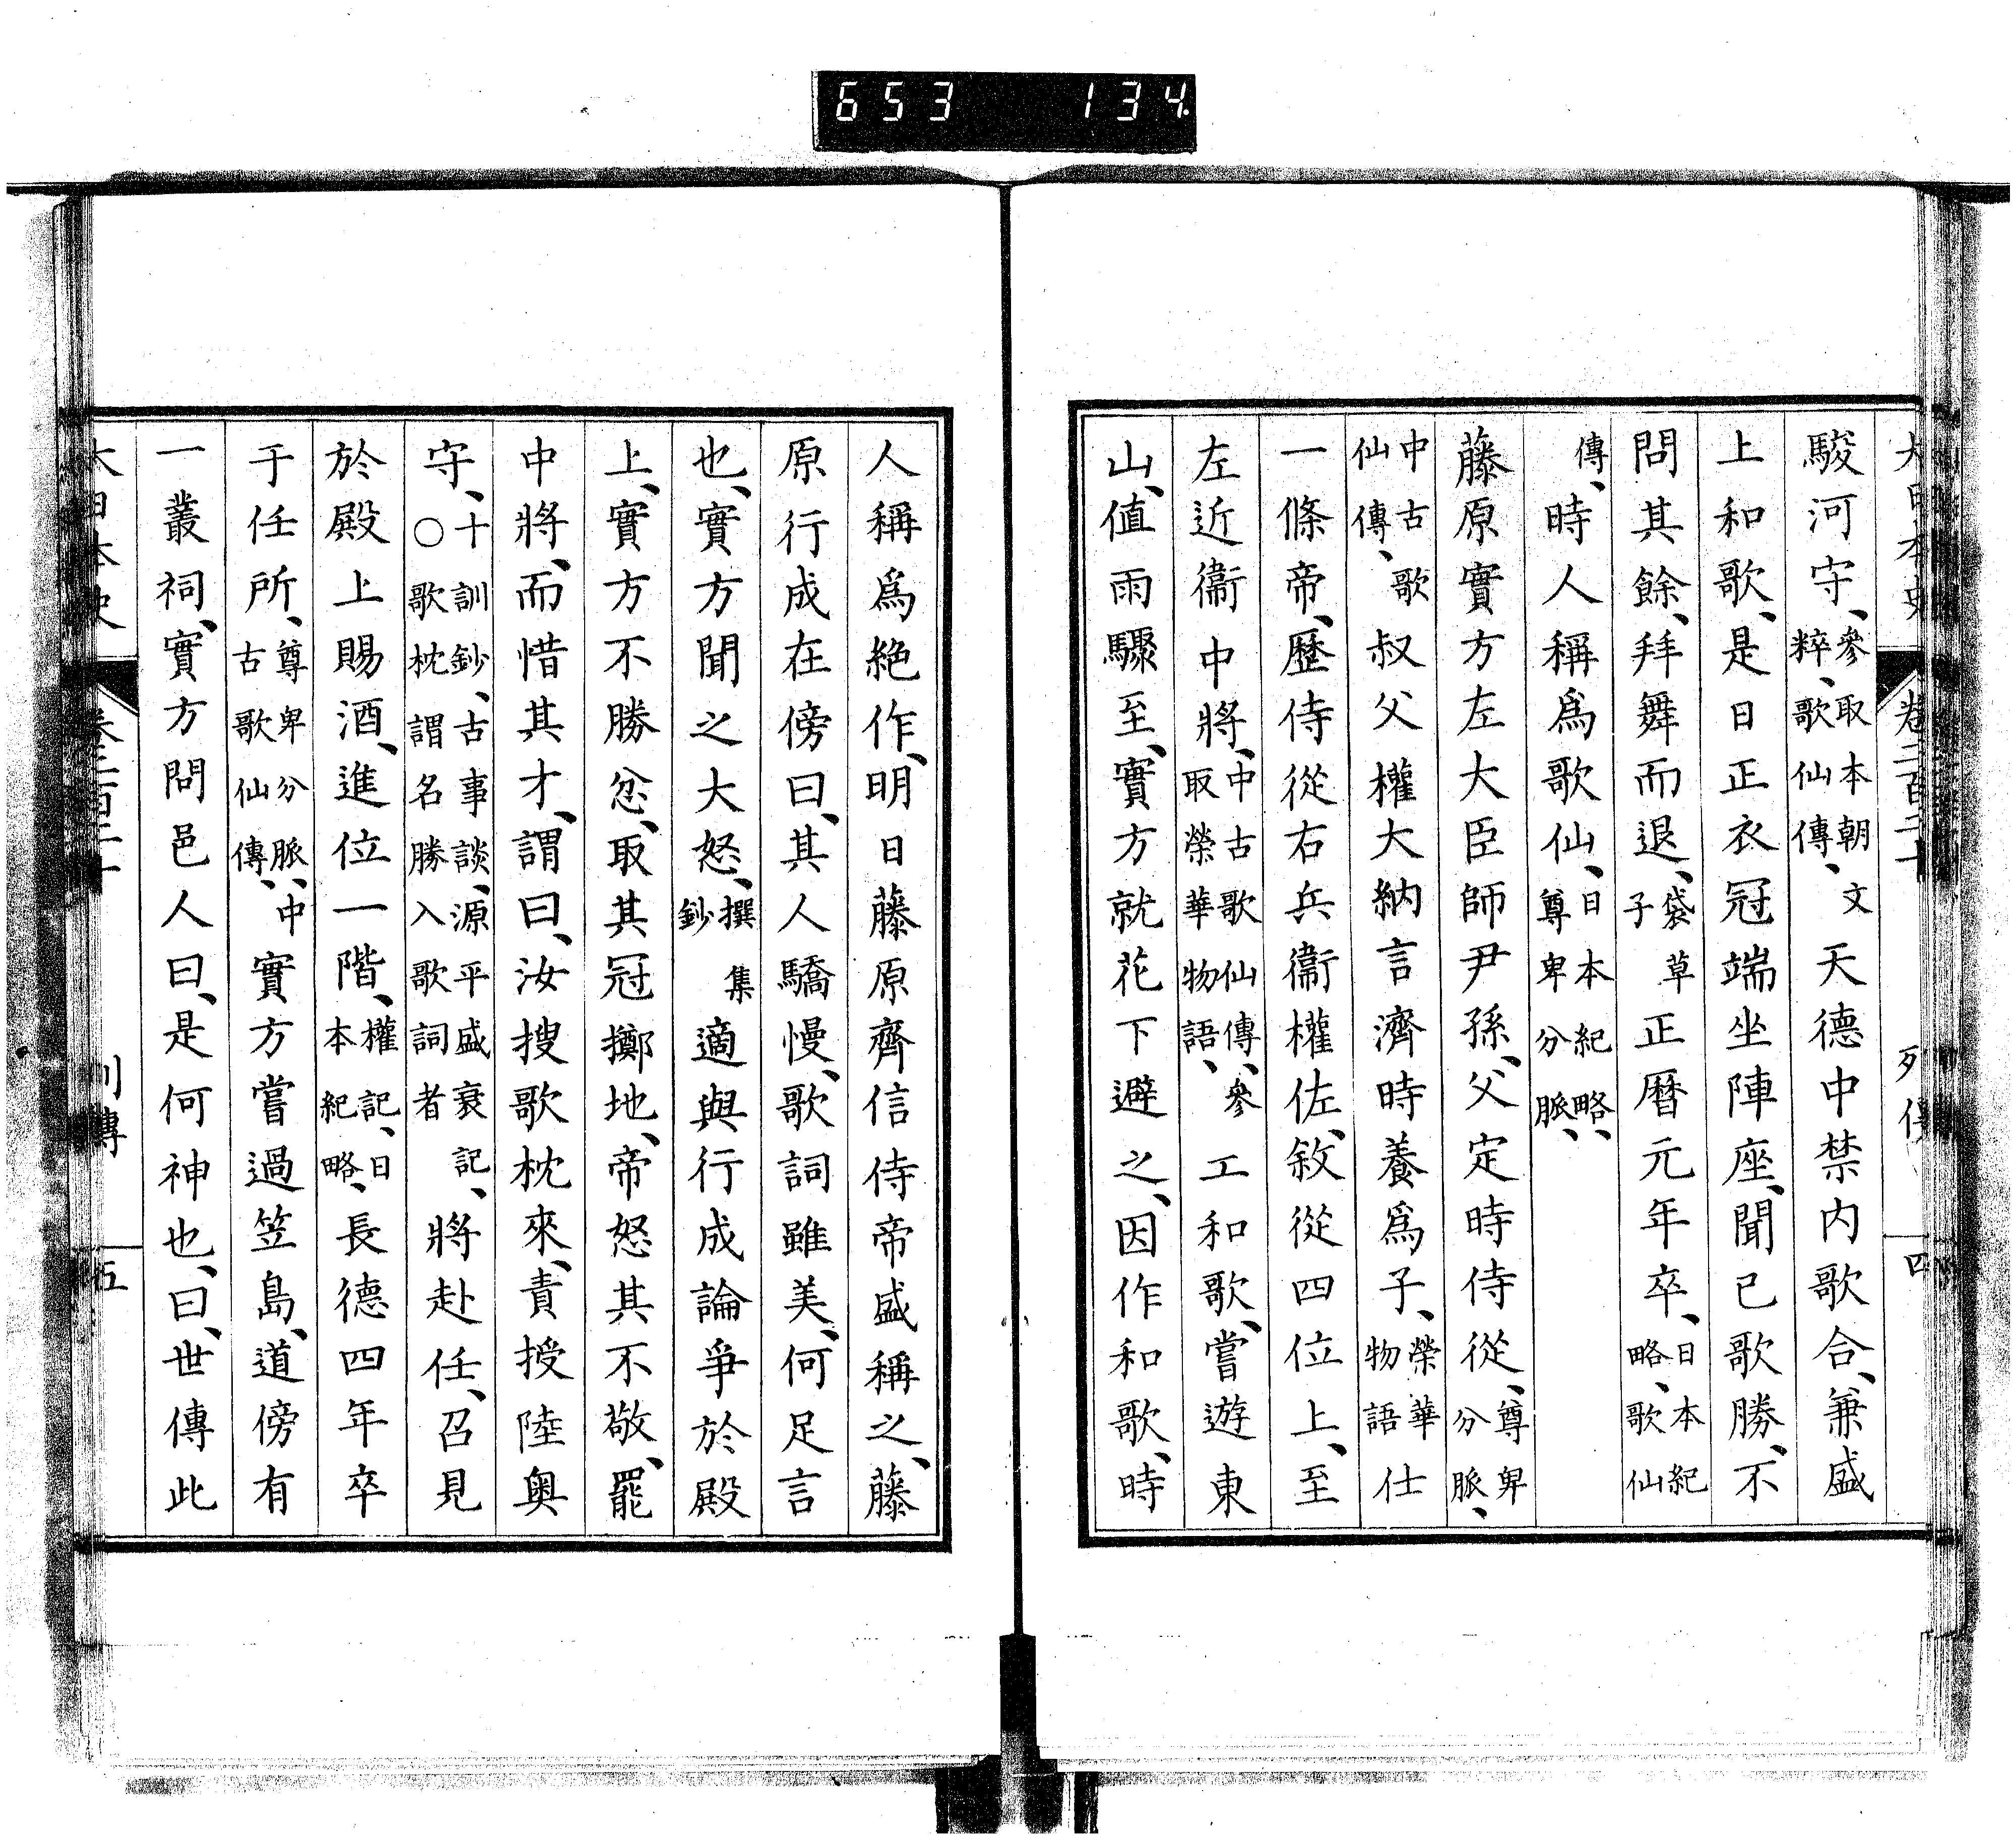 653 134
大日本史 卷二百二十 列傳 四
駿河守、參取本朝文粹、歌仙傳、天德中禁内歌合、兼盛
上和歌、是日正衣冠端坐陣座、聞已歌勝、不
問其餘、拜舞而退、袋草子正曆元年卒、日本紀略、歌仙
傳、時人稱爲歌仙、日本紀略、尊卑分脈、
藤原實方左大臣師尹孫、父定時侍從、尊卑分脈、
中古歌仙傳、叔父權大納言濟時養爲子、榮華物語仕
一條帝、歷侍從右兵衞權佐、敘從四位上、至
左近衞中將、中古歌仙傳、參取榮華物語、工和歌、嘗遊東
山、値雨驟至、實方就花下避之、因作和歌、時
人稱爲絶作、明日藤原齊信侍帝盛稱之、藤
原行成在傍曰、其人驕慢、歌詞雖美、何足言
也、實方聞之大怒、撰集鈔適與行成論爭於殿
上、實方不勝忿、取其冠擲地、帝怒其不敬、罷
中將、而惜其才、謂曰、汝搜歌枕來、責授陸奧
守、十訓鈔、古事談、源平盛衰記、○歌枕謂名勝入歌詞者將赴任、召見
於殿上賜酒、進位一階、權記、日本紀略、長德四年卒
于任所、尊卑分脈、中古歌仙傳、實方嘗過笠島、道傍有
一叢祠、實方問邑人曰、是何神也、曰、世傳此
大日本史 卷二百二十 列傳 五